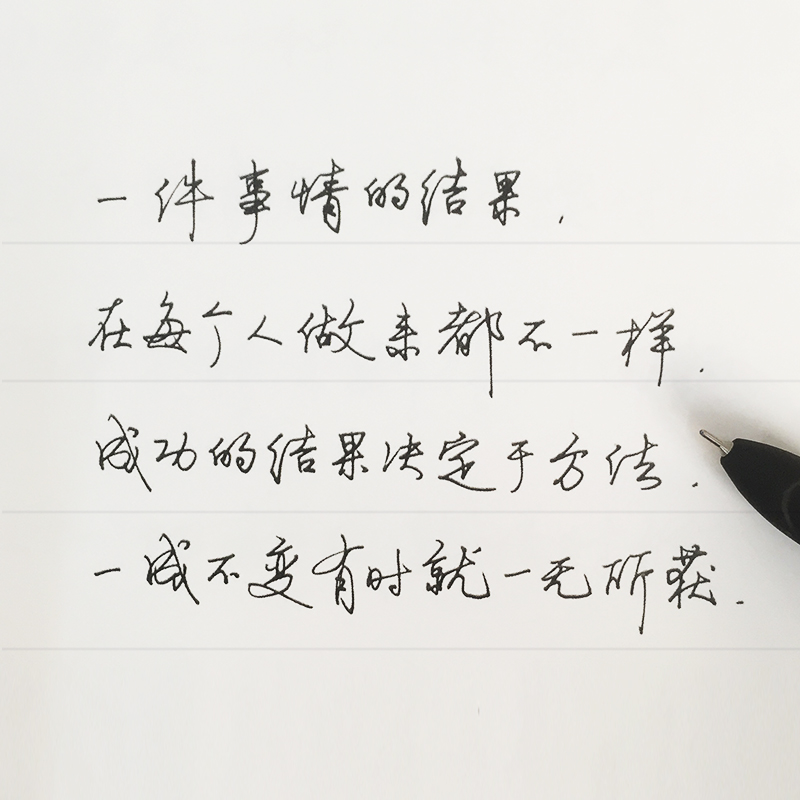 一件事情的结果,
在每个人做来都不一样.
成功的结果决定于方法.
一成不变有时就一无所获.